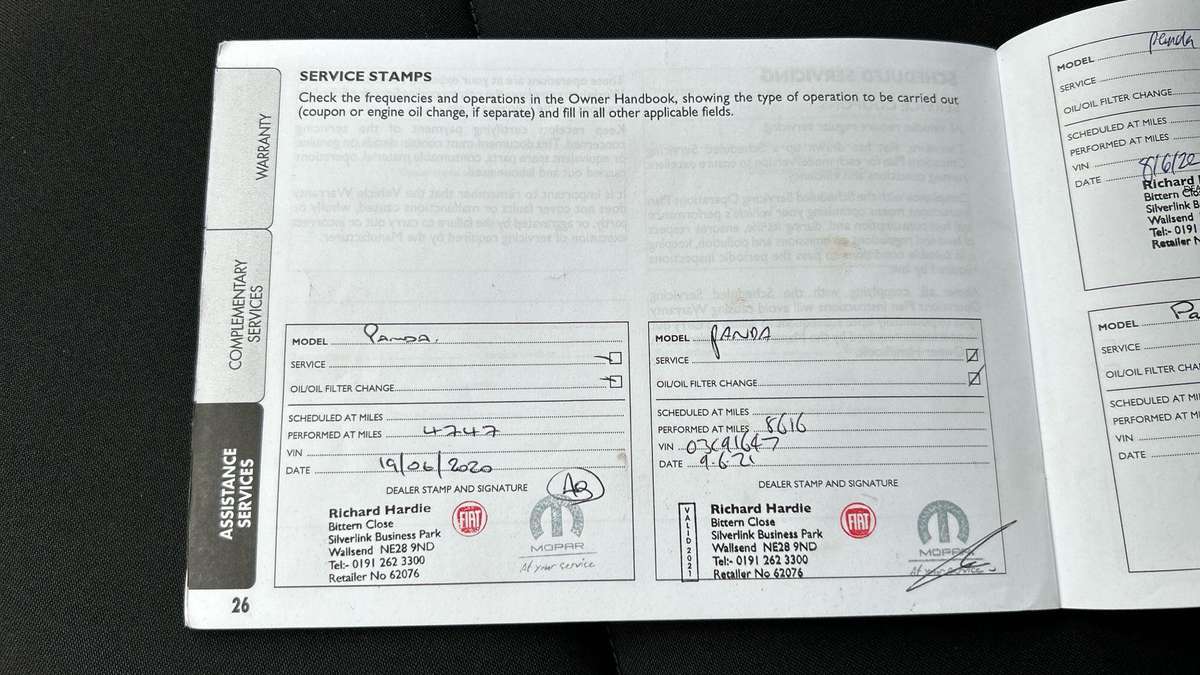 SERVICE STAMPS
Check the frequencies and operations in the Owner Handbook, showing the type of operation to be carried out
(coupon or engine oil change, if separate) and fill in all other applicable fields.
WARRANTY
COMPLEMENTARY
SERVICES
ASSISTANCE
SERVICES
MODEL PANDA.
SERVICE
OIL/OIL FILTER CHANGE
SCHEDULED AT MILES
PERFORMED AT MILES 4747
VIN
DATE 19/06/2020
DEALER STAMP AND SIGNATURE
Richard Hardie
Bittern Close
Silverlink Business Park
Wallsend NE28 9ND
Tel:- 0191 262 3300
Retailer No 62076
FIAT
MOPAR
At your service
MODEL PANDA
SERVICE
OIL/OIL FILTER CHANGE
SCHEDULED AT MILES
PERFORMED AT MILES 8616
VIN 03C91647
DATE 9.6.21
DEALER STAMP AND SIGNATURE
VALID 2021
Richard Hardie
Bittern Close
Silverlink Business Park
Wallsend NE28 9ND
Tel:- 0191 262 3300
Retailer No 62076
FIAT
MOPAR
At your service
26
MODEL Panda
SERVICE
OIL/OIL FILTER CHANGE
SCHEDULED AT MILES
PERFORMED AT MILES
VIN
DATE 8/6/22
Richard
Bittern
Silverlink B
Wallsend
Tel:- 0191
Retailer N
MODEL Pa
SERVICE
OIL/OIL FILTER CHA
SCHEDULED AT MI
PERFORMED AT M
VIN
DATE